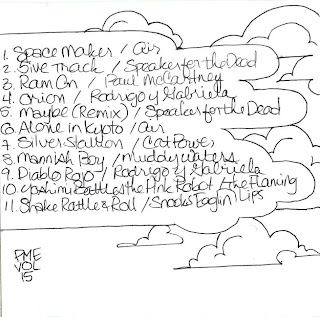 1. Space Maker / Air
2. 5ive Track / Speaker for the Dead
3. Ram On / Paul McCartney
4. Orion / Rodrigo y Gabriela
5. Maybe (Remix) / Speaker for the Dead
6. Alone in Kyoto / Air
7. Silver Stallion / Cat Power
8. Mannish Boy / Muddy Waters
9. Diablo Rojo / Rodrigo y Gabriela
10. Yoshimi Battles the Pink Robot / The Flaming Lips
11. Shake Rattle & Roll / Snooks Eaglin
PME
VOL
15